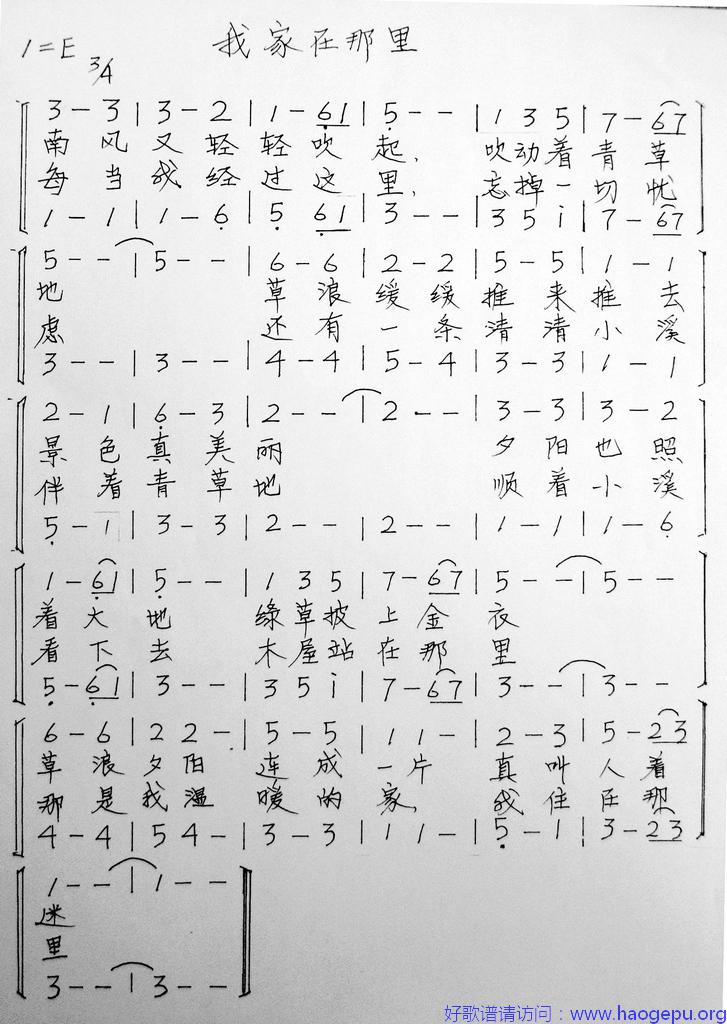 我家在那里
1=E
3/4
3 - 3 | 3 - 2 | 1 - 61 | 5 - - | 1 3 5 | 7 - 67
南 风 又 轻 轻 吹 起, 吹 动 着 青 草
每 当 我 经 过 这 里, 忘 掉 一 切 忧
1 - 1 | 1 - 6 | 5 61 | 3 - - | 3 5 i | 7 - 67
5 - - | 5 - - | 6 - 6 | 2 - 2 | 5 - 5 | 1 - 1
地 草 浪 缓 缓 推 来 推 去
虑 还 有 一 条 清 清 小 溪
3 - - | 3 - - | 4 - 4 | 5 - 4 | 3 - 3 | 1 - 1
2 - 1 | 6 - 3 | 2 - - | 2 - - | 3 - 3 | 3 - 2
景 色 真 美 丽 夕 阳 也 照
伴 着 青 草 地 顺 着 小 溪
5 - 1 | 3 - 3 | 2 - - | 2 - - | 1 - 1 | 1 - 6
1 - 61 | 5 - - | 1 3 5 | 7 - 67 | 5 - - | 5 - -
着 大 地 绿 草 披 上 金 衣
看 下 去 木 屋 站 在 那 里
5 - 61 | 3 - - | 3 5 i | 7 - 67 | 3 - - | 3 - -
6 - 6 | 2 2 - | 5 - 5 | 1 1 - | 2 - 3 | 5 - 23
草 浪 夕 阳 连 成 一 片 真 叫 人 着
那 是 我 温 暖 的 家, 我 住 在 那
4 - 4 | 5 4 - | 3 - 3 | 1 1 - | 5 - 1 | 3 - 23
1 - - | 1 - -
迷
里
3 - - | 3 - -
好歌谱请访问：www.haogepu.org